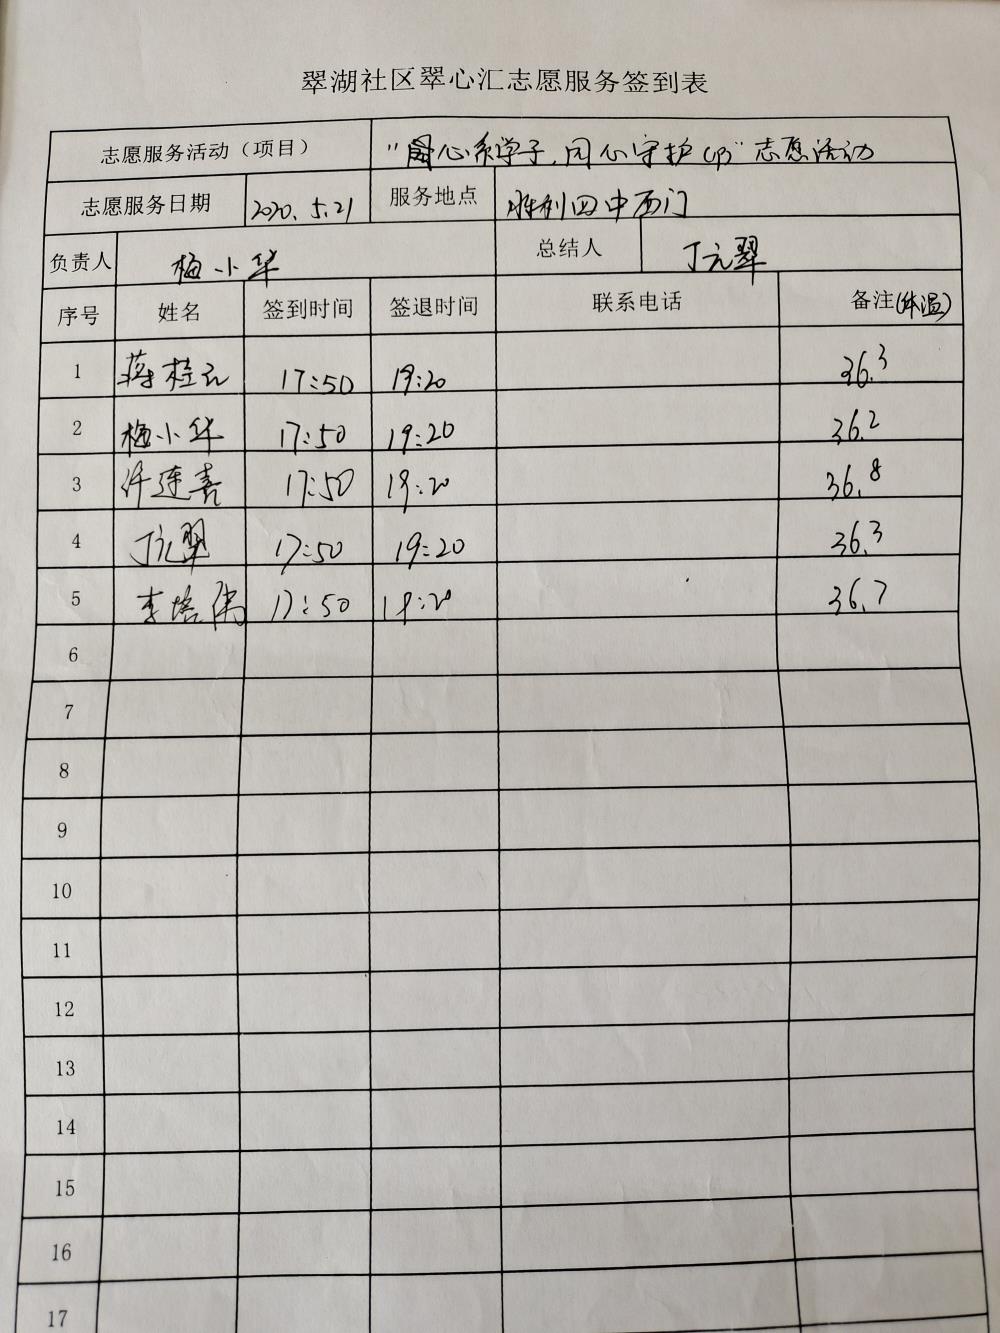 翠湖社区翠心汇志愿服务签到表
志愿服务活动（项目） "爱心系学子,同心守护你"志愿活动
志愿服务日期 2020.5.21 服务地点 胜利四中西门
负责人 梅小华 总结人 丁元翠
序号 姓名 签到时间 签退时间 联系电话 备注(体温)
1 蒋桂云 17:50 19:20 36.3
2 梅小华 17:50 19:20 36.2
3 仟连喜 17:50 19:20 36.8
4 丁元翠 17:50 19:20 36.3
5 李培 17:50 19:20 36.7
6
7
8
9
10
11
12
13
14
15
16
17